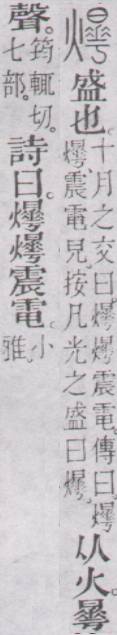 爗盛也。十月之交曰。爗爗震電。傳曰。爗爗震電皃。按凡光之盛曰爗。从火。曅
聲。筠輒切。七部。詩曰。爗爗震電。小雅。